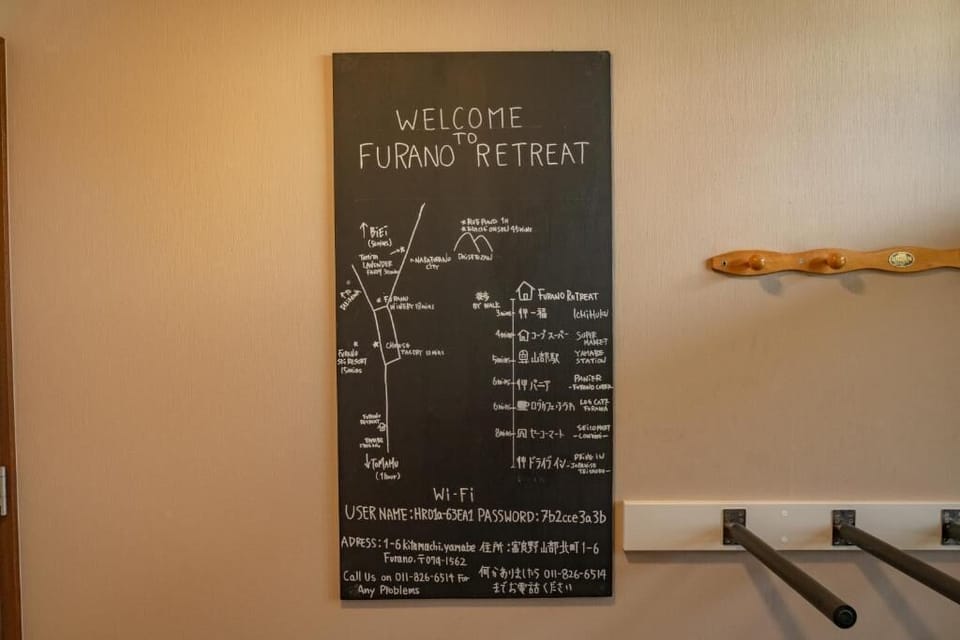 WELCOME
TO
FURANO RETREAT
↑ BiEi
(30mins)
TOMITA
LAVENDER
FARM
NAKAFURANO
CITY
DAISETSUZAN
FURANO
WINERY
FURANO
SKI RESORT
15mins
CHEESE
FURANO
RETREAT
↓TOMAMU
(1hour)
徒歩
BY WALK
FURANO RETREAT
3mins 一福 IchiHuku
4mins コープスーパー SUPER
MARKET
5mins 山部駅 YAMABE
STATION
6mins パニア PANiER
6mins LOG CAFE
FURANO
8mins セーコーマート SEICOMART
ドライブイン DRIVE IN
Wi-Fi
USER NAME:HR01a-63EA1 PASSWORD:7b2cce3a3b
ADRESS:1-6 kitamachi.yamabe 住所:富良野山部北町1-6
Furano. 〒079-1562
Call Us on 011-826-6514 For 何かありましたら 011-826-6514
Any Problems までお電話ください